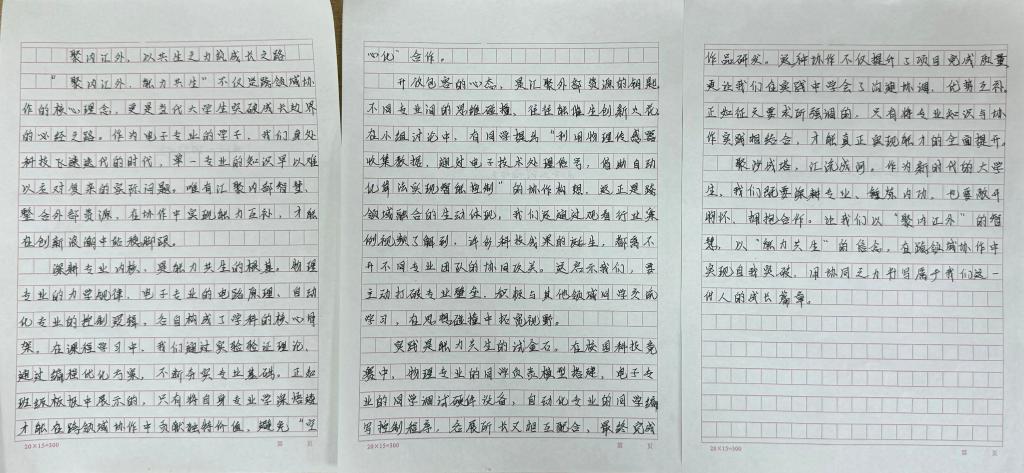 聚内汇外，以共生之力筑成长之路
“聚内汇外，能力共生”不仅是跨领域协
作的核心理念，更是当代大学生突破成长边界
的必经之路。作为电子专业的学子，我们身处
科技飞速迭代的时代，单一专业的知识早以难
以应对复杂的实际问题。唯有汇聚内部智慧、
整合外部资源，在协作中实现能力互补，才能
在创新浪潮中站稳脚跟。
深耕专业内核，是能力共生的根基。物理
专业的力学规律，电子专业的电路原理、自动
化专业的控制逻辑，各自构成了学科的核心骨
架。在课程学习中，我们通过实验验证理论、
通过编程优化方案，不断夯实专业基础。正如
班级板报中展示的，只有将自身专业学深悟透
才能在跨领域协作中贡献独特价值，避免“空
20×15=300
第 页
心化”合作。
开放包容的心态，是汇聚外部资源的钥匙
不同专业间的思维碰撞，往往能催生创新火花
在小组讨论中，有同学提出“利用物理传感器
收集数据，通过电子技术处理信号，借助自动
化算法实现智能控制”的协作构想，这正是跨
领域融合的生动体现。我们还通过观看行业案
例视频了解到，许多科技成果的诞生，都离不
开不同专业团队的协同攻关。这启示我们，要
主动打破专业壁垒，积极与其他领域同学交流
学习，在思想碰撞中拓宽视野。
实践是能力共生的试金石。在校园科技竞
赛中，物理专业的同学负责模型搭建，电子专
业的同学调试硬件设备，自动化专业的同学编
写控制程序，各展所长又相互配合，最终完成
20×15=300
第 页
作品研发。这种协作不仅提升了项目完成质量
更让我们在实践中学会了沟通协调、优势互补。
正如任天要求所强调的，只有将专业知识与协
作实践相结合，才能真正实现能力的全面提升。
聚沙成塔，汇流成河。作为新时代的大学
生，我们既要深耕专业、锤炼内功，也要敞开
胸怀、拥抱合作。让我们以“聚内汇外”的智
慧，以“能力共生”的信念，在跨领域协作中
实现自我突破，用协同之力书写属于我们这一
代人的成长篇章。
20×15=300
第 页